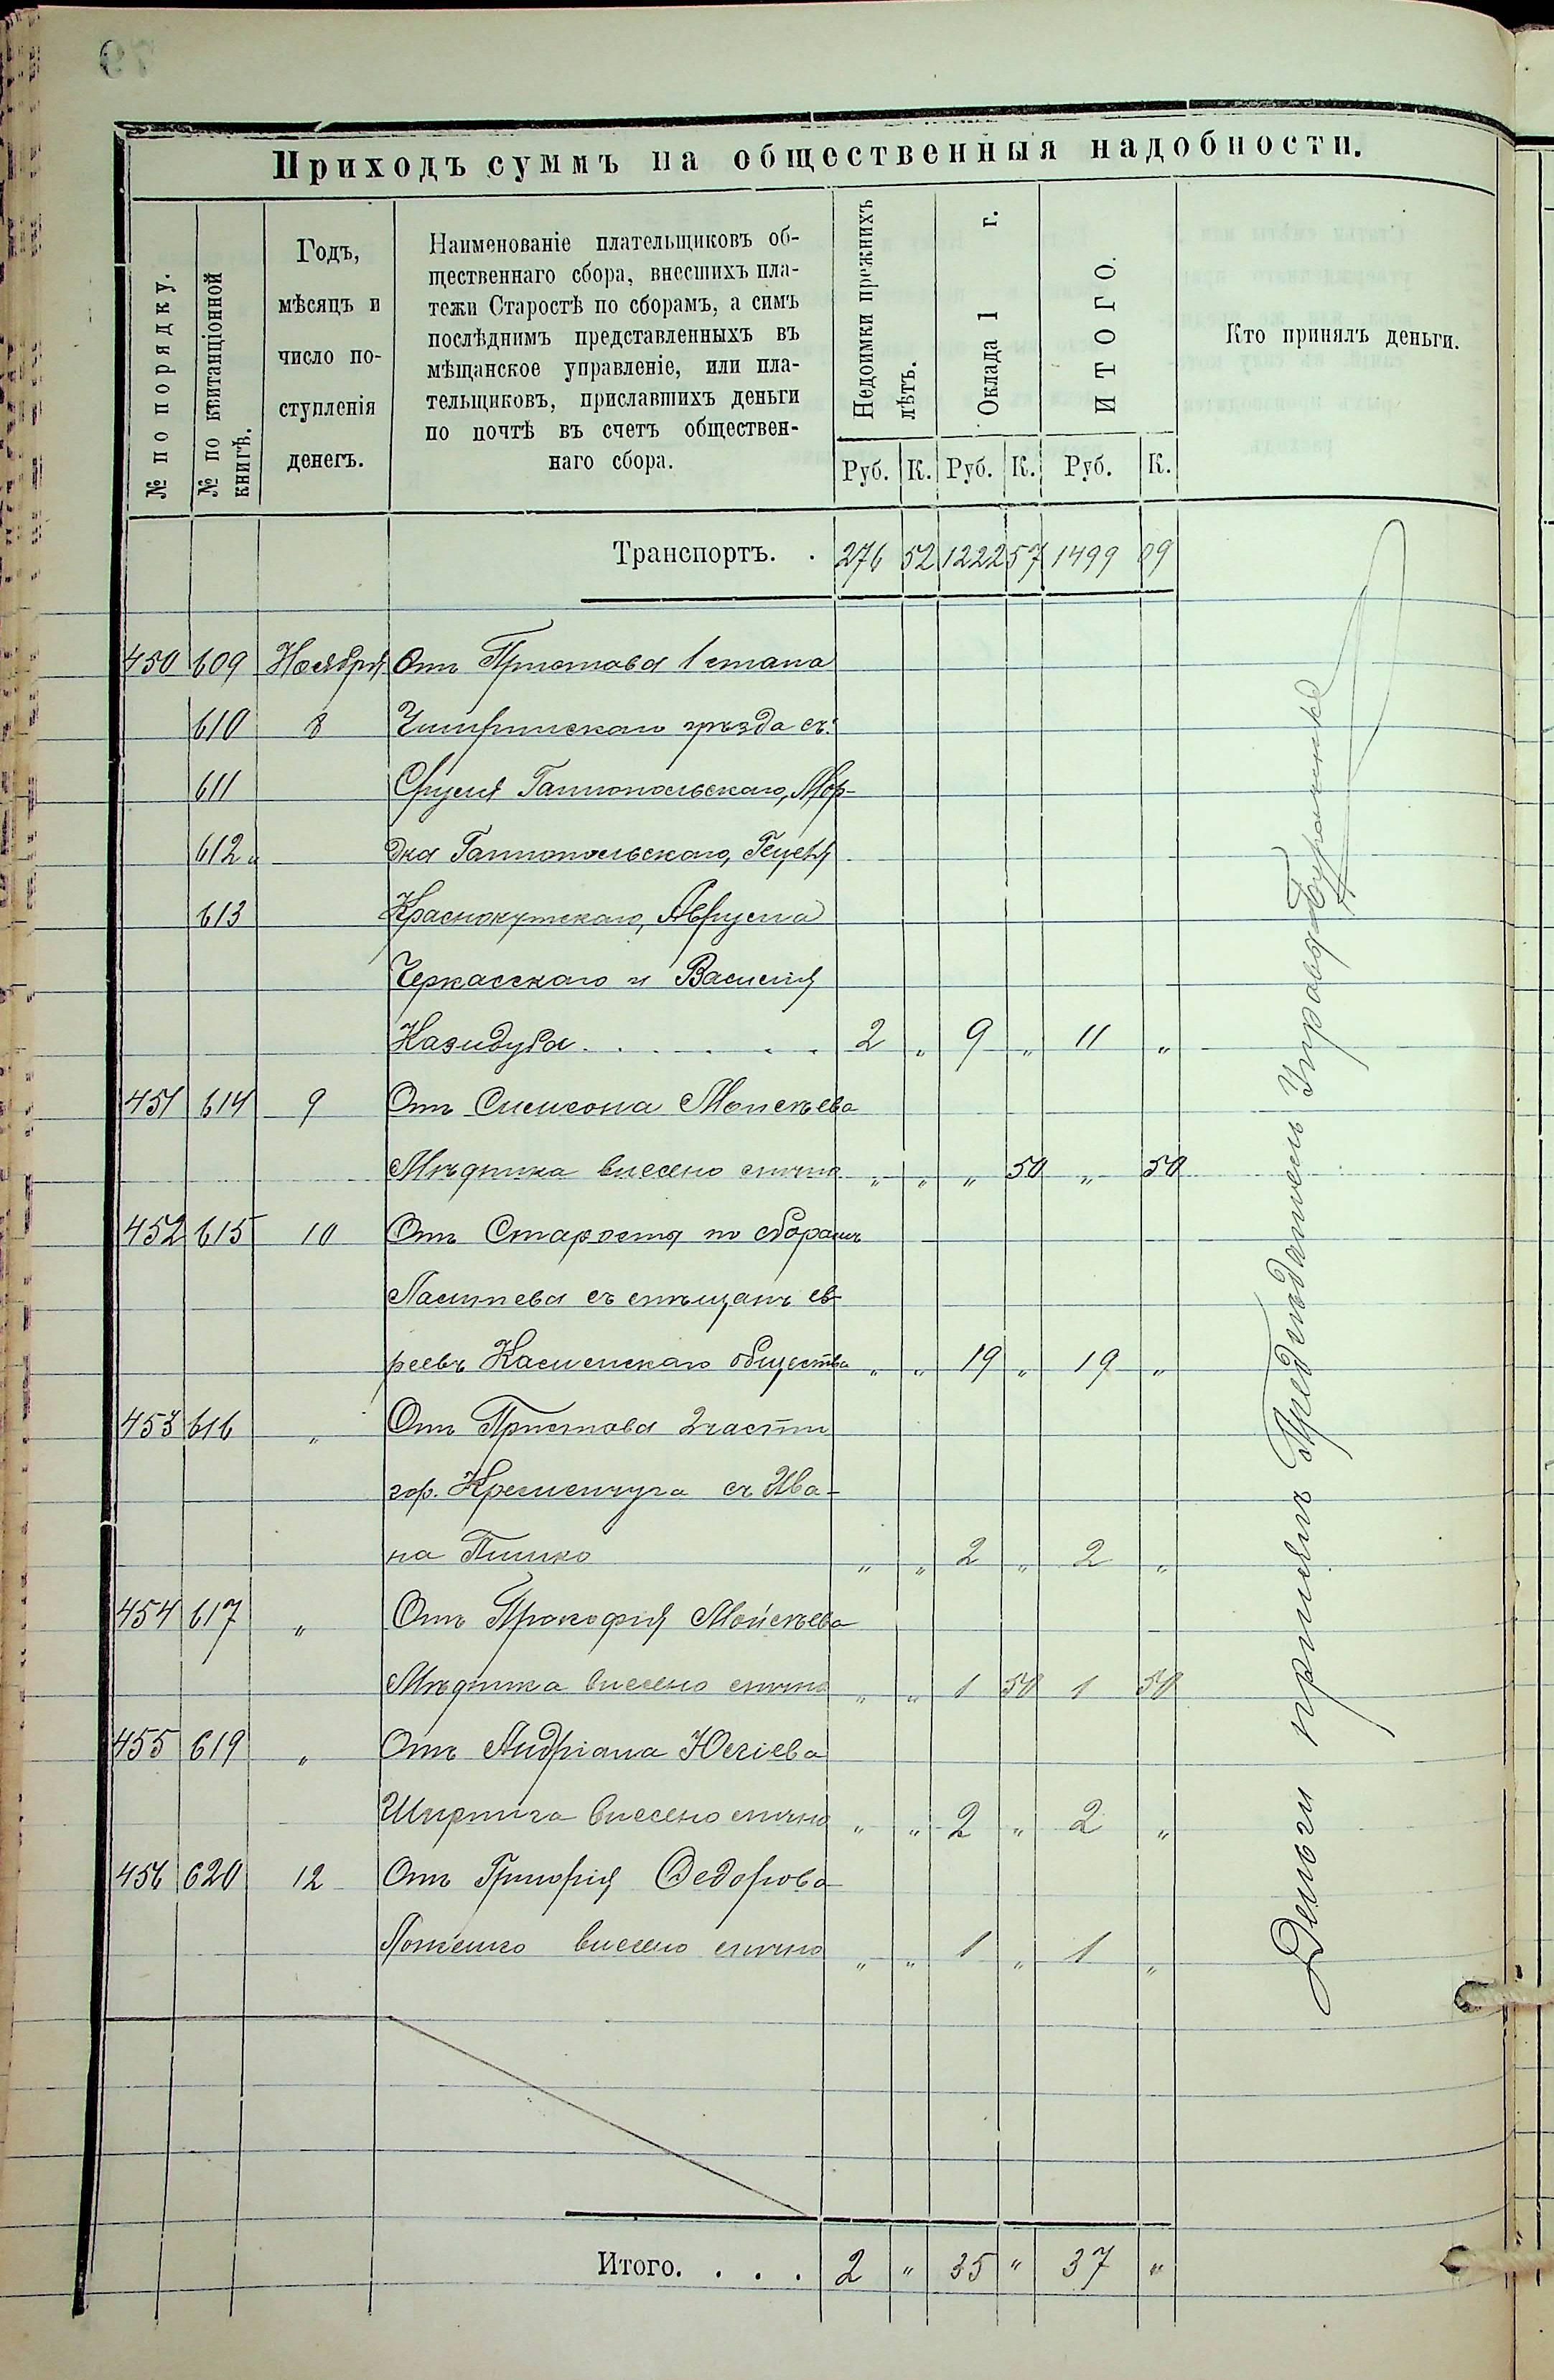 Приходъ суммъ на общественныя надобности.
№ по порядку.
№ по квитанціонной
книгѣ.
Годъ,
мѣсяцъ и
число по-
ступленія
денегъ.
Наименованіе плательщиковъ об-
щественнаго сбора, внесшихъ пла-
тежи Старостѣ по сборамъ, а симъ
послѣднимъ представленныхъ въ
мѣщанское управленіе, или пла-
тельщиковъ, приславшихъ деньги
по почтѣ въ счетъ обществен-
наго сбора.
Недоимки прежнихъ
лѣтъ.
Оклада 1 г.
ИТОГО.
Кто принялъ деньги.
Руб. К. Руб. К. Руб. К.
Транспортъ. . 276 52 1222 57 1499 09
450 609 Ноября Отъ Пристава 1 стана
610 8 Чигиринскаго уѣзда съ:
611 Сруля Ганнопольскаго, Мор-
612 „ дка Ганнопольскаго, Гецеля
613 Краснокутскаго, Аврума
Черкасскаго и Василія
Казидуба . . . . . . 2 „ 9 „ 11 „
451 614 9 Отъ Симиона Моисѣева
Мѣдника внесено лично „ „ „ 50 „ 50
452 615 10 Отъ Старосты по сборамъ
съ мѣщанъ ев-
реевъ Каменскаго общества „ „ 19 „ 19 „
453 616 „ Отъ Пристава 2 части
гор. Кременчуга съ Ива-
на „ „ 2 „ 2 „
454 617 „ Отъ Прокофія Мойсѣева
Мѣдника внесено лично „ „ 1 50 1 50
455 619 „ Отъ Андріана
внесено лично „ „ 2 „ 2 „
456 620 12 Отъ Григорія Федорова
внесено лично „ „ 1 „ 1 „
Деньги принялъ Предсѣдатель Управы
Итого. . . . 2 „ 35 „ 37 „